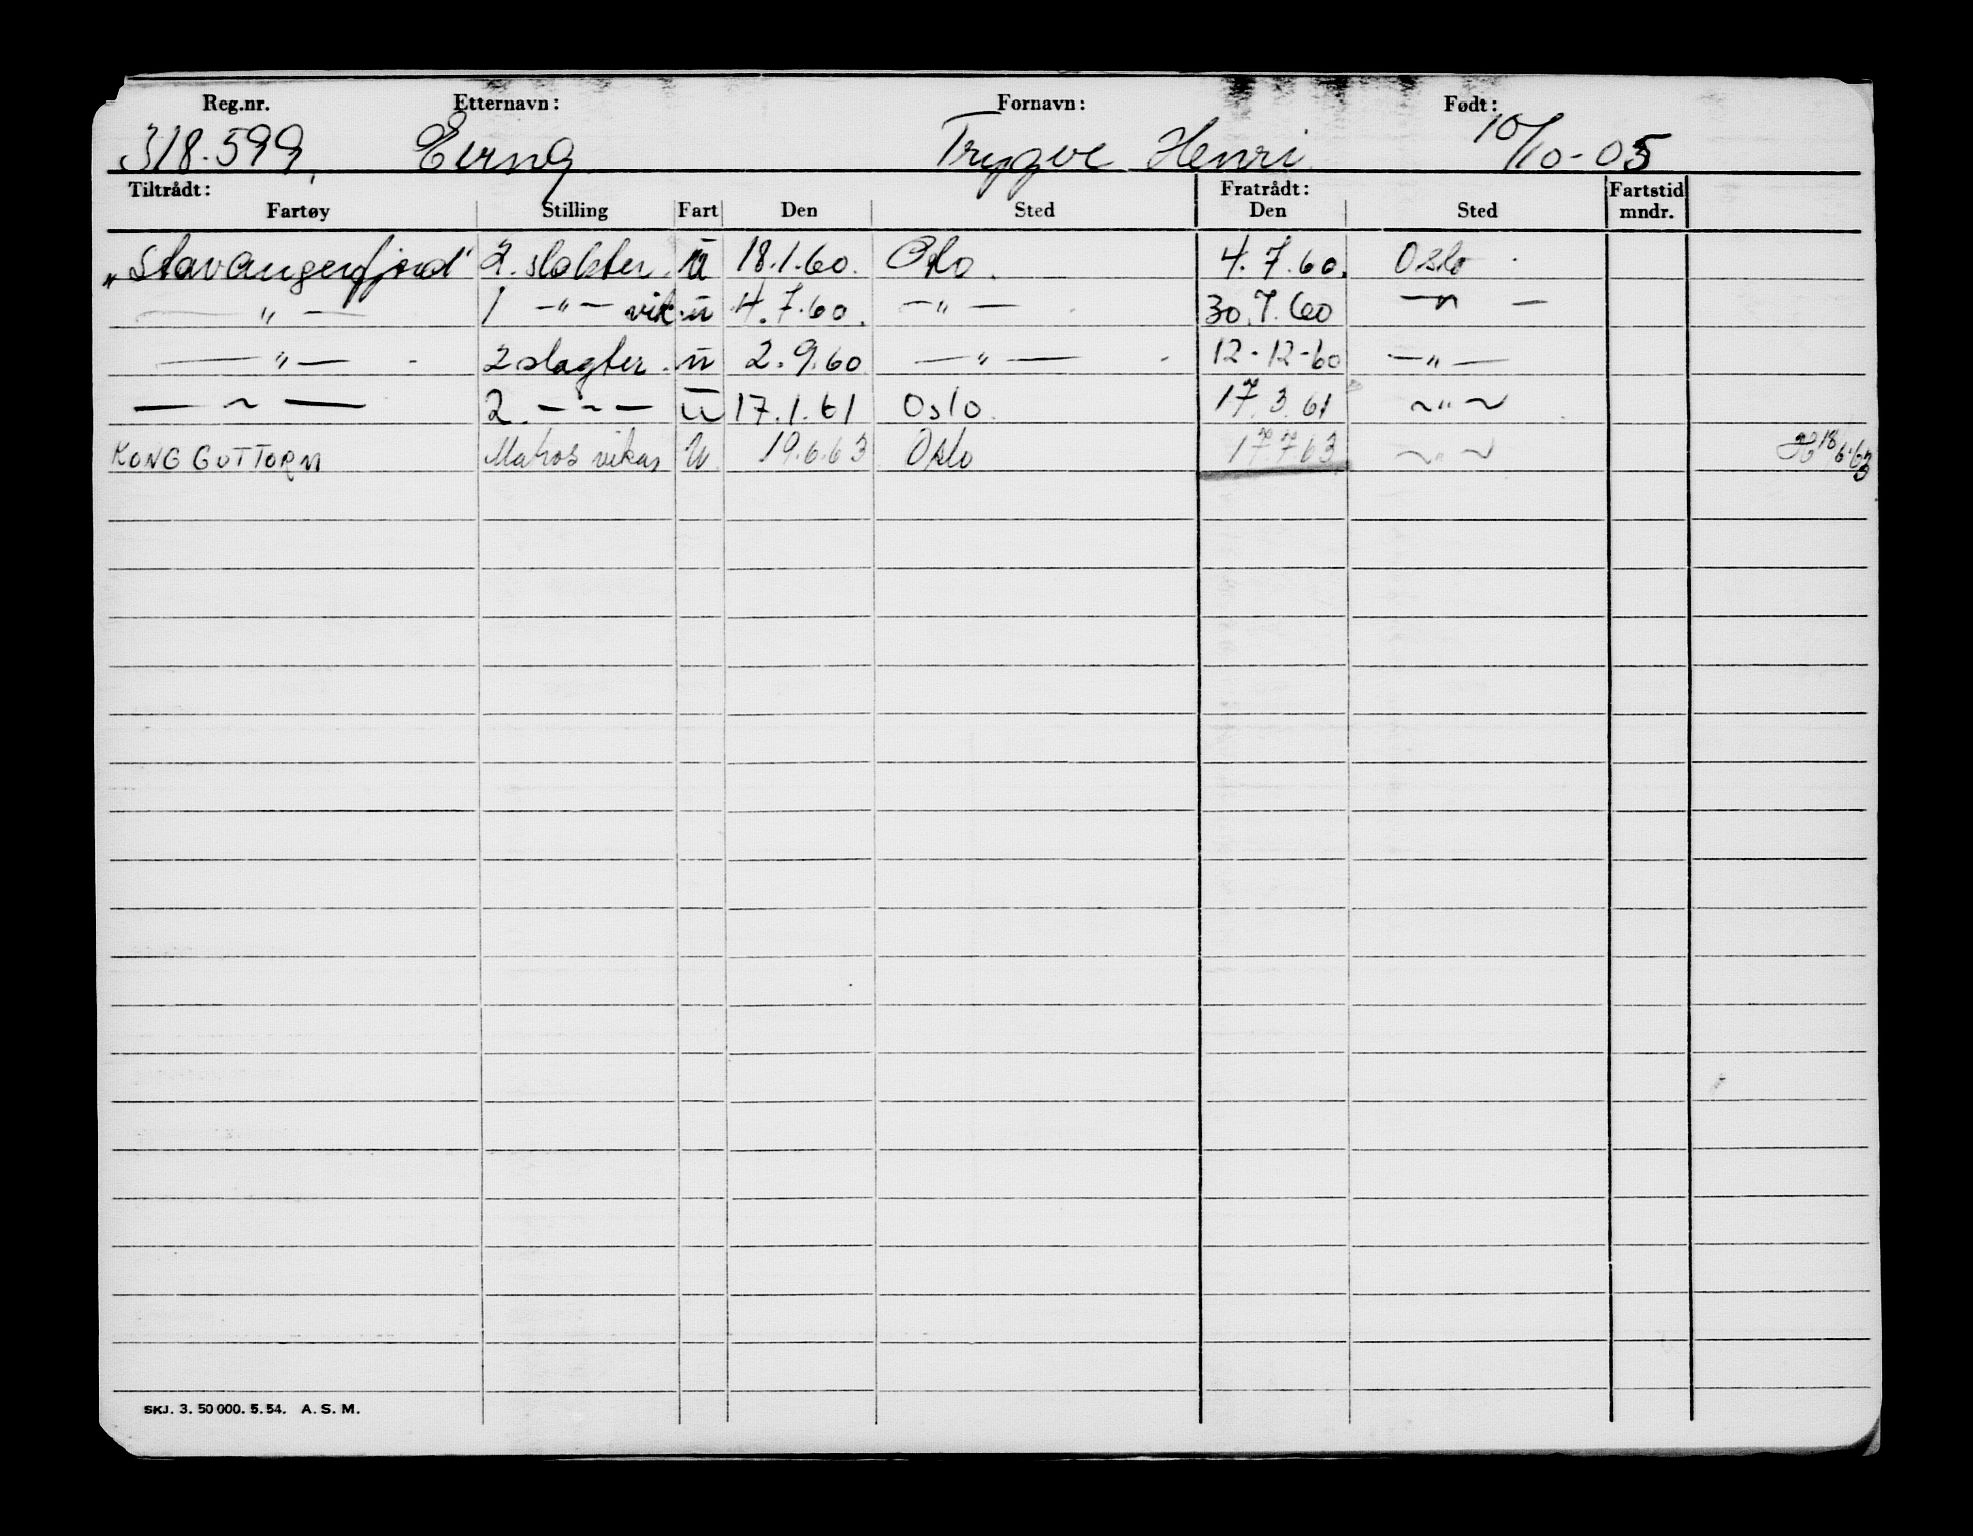 Reg.nr. Etternavn: Fornavn: Født:
318.599. Eirng Trygve Henri 10/10-05
Tiltrådt: Fratrådt: Fartstid
Fartøy Stilling Fart Den Sted Den Sted mndr.
„Stavangerfjord" 2. slakter. ū 18.1.60. Oslo. 4.7.60. Oslo
— " — 1 — " — vik. ū 4.7.60. — " — 30.7.60 — " —
— " — 2 slagter. ū 2.9.60 — " — 12-12-60 — " —
— ~ — 2. — ~ — ū 17.1.61 Oslo. 17.3.61 ~ " ~
KONG GUTTORM Matros vikar U 19.6.63 Oslo 17.7.63 ~ " ~ 18/6-63
SKJ. 3. 50 000. 5. 54. A. S. M.